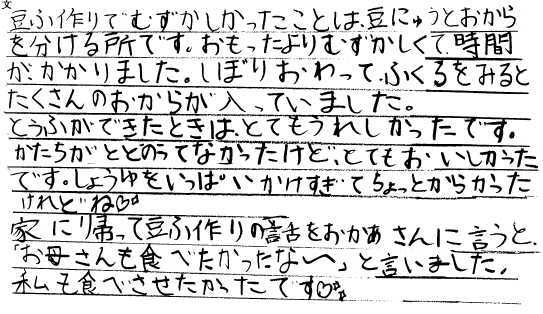 文
豆ふ作りでむずかしかったことは、豆にゅうとおから
を分ける所です。おもったよりむずかしくて、時間
が、かかりました。しぼりおわって、ふくろをみると
たくさんのおからが入っていました。
とうふができたときは、とてもうれしかったです。
かたちがととのってなかったけど、とてもおいしかった
です。しょうゆをいっぱいかけすぎてちょっとからかった
けれどね♡
家に帰って豆ふ作りの話をおかあさんに言うと、
「お母さんも食べたかったな〜」と言いました。
私も食べさせたかったです♡